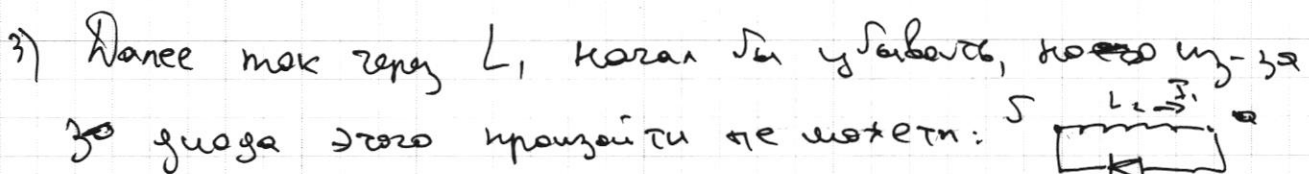 3) Далее ток через L, начал бы убывать, но из-за
диода этого произойти не может: L₂ I₁